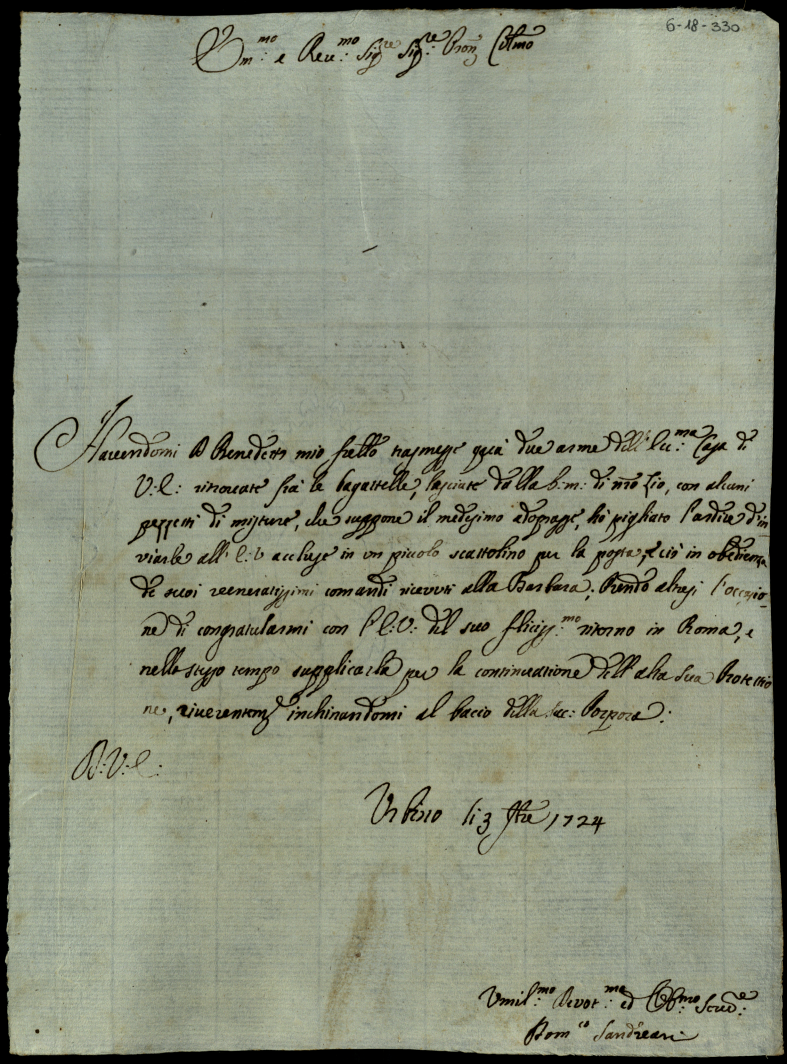 6-18-330
Em:mo e Reu:mo Sig:re Sig:re Pron Colmo
Hauendomi D Benedetto mio fratto trasmesse quà due arme dell' Ecc:ma Casa di
V: E: ritrouate frà le bagattelle, lasciate dalla b: m: di nro Zio, con alcuni
pezzetti di misture, che suppone il medesimo adoprasse, hò pigliato l'ardire d'in
viarle all' E: V accluse in un piccolo scattolino per la posta, e ciò in obedienza
de suoi veneratissimi comandi riceuuti alla Barbara; Prendo altresi l'occasio-
ne di congratularmi con l' E: V: del suo feliciss:mo ritorno in Roma, e
nello stesso tempo supplicarla per la continuatione dell' alta sua Protettio
ne, riuerentemte inchinandomi al bacio della Sac: Porpora:
D: V: E:
Urbino li 3 1724
Umil:mo Deuot:mo ed Obb:mo Seru:e
Dom:co